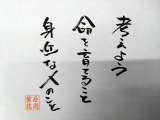 考えよう
命を育てること
身近な人のこと